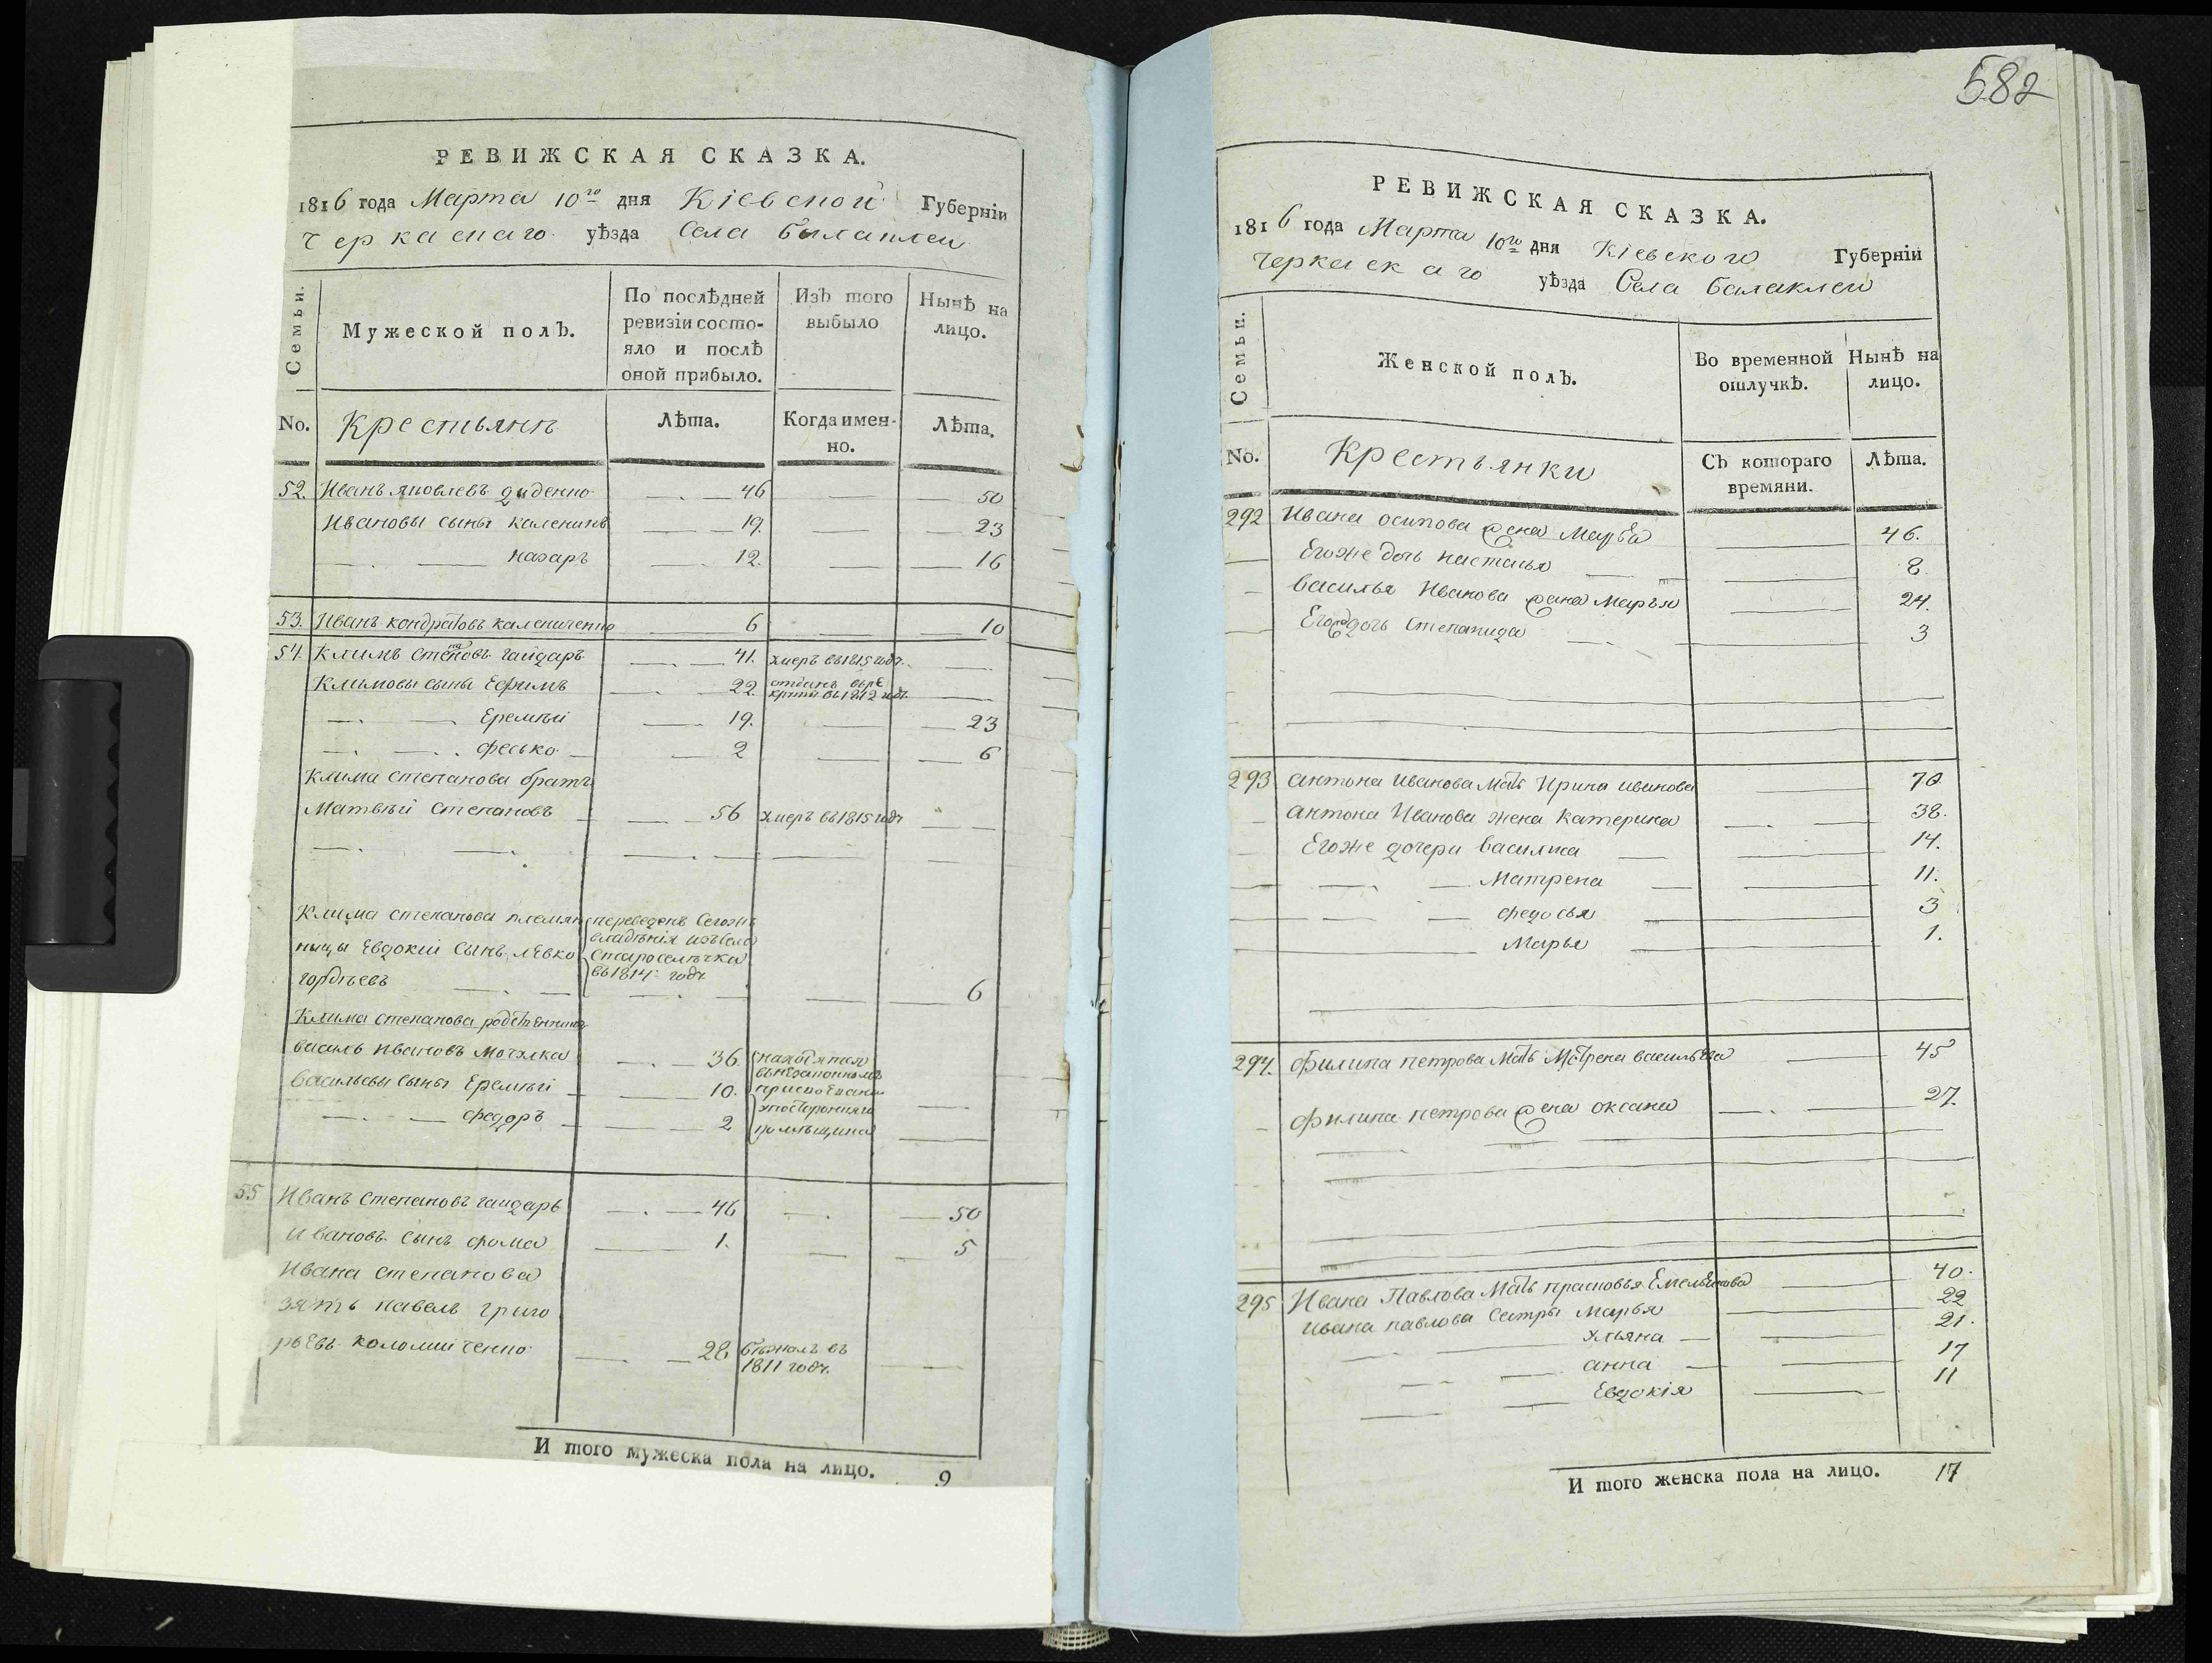 РЕВИЖСКАЯ СКАЗКА.
1816 года Марта 10го дня Кіевской Губерніи
Черкаскаго уѣзда Села Балаклеи
Семьи.
Мужеской полъ.
По послѣдней ревизіи состояло и послѣ оной прибыло.
Изъ того выбыло
Нынѣ на лицо.
No. Крестьянъ Лѣта. Когда именно. Лѣта.
52. Иванъ Яковлевъ диденко 46 50
Ивановы сыны каленикъ 19. 23
назаръ 12. 16
53. Иванъ кондратовъ калениченко 6 10
54. Климъ Степановъ гайдаръ 41. умеръ въ 1815 годѣ
Климовы сыны Ефимъ 22 отданъ въ ре
круты въ 1812 годѣ
Еремѣй 19. 23
фесько 2 6
Клима степанова братъ
Матвѣй Степановъ 56 умеръ въ 1815 годѣ
Клима степанова племян переведенъ Сегожъ
ницы Евдокіи Сынъ Левко владѣнія изъ села
гордѣевъ Староселѣчка
въ 1814 годѣ 6
Клима степанова родственникъ
василь Ивановъ Мочалка 36. находятся
Васильевы сыны Еремѣй 10. въ незаконномъ
федоръ 2 помѣщика
55 Иванъ Степановъ гайдаръ 46 50
Ивановъ Сынъ фома 1. 5
Ивана степанова
зять павелъ григо
рьевъ коломийченко 28 бѣжалъ въ
1811 годѣ.
И того мужеска пола на лицо. 9
582
РЕВИЖСКАЯ СКАЗКА.
1816 года Марта 10го дня Кіевского Губерніи
Черкаскаго уѣзда Села балаклеи
Семьи.
Женской полъ.
Во временной отлучкѣ.
Нынѣ на лицо.
No. Крестьянки Съ котораго времяни. Лѣта.
292 Ивана осипова жена Марфа 46.
Егоже дочь настасья 8.
василья Иванова жена Марья 24.
Его дочь степанида 3
293 антона иванова Мать Ирина иванова 70
антона Иванова жена катерина 38.
Егоже дочери василиса 14.
Матрена 11.
федосья 3
Марья 1.
294. филипа петрова Мать Матрена васильева 45
филипа петрова жена оксана 27.
295 Ивана Павлова Мать прасковья Емельянова 40.
ивана павлова сестры марья 22
ульяна 21.
анна 17
Евдокія 11
И того женска пола на лицо. 17